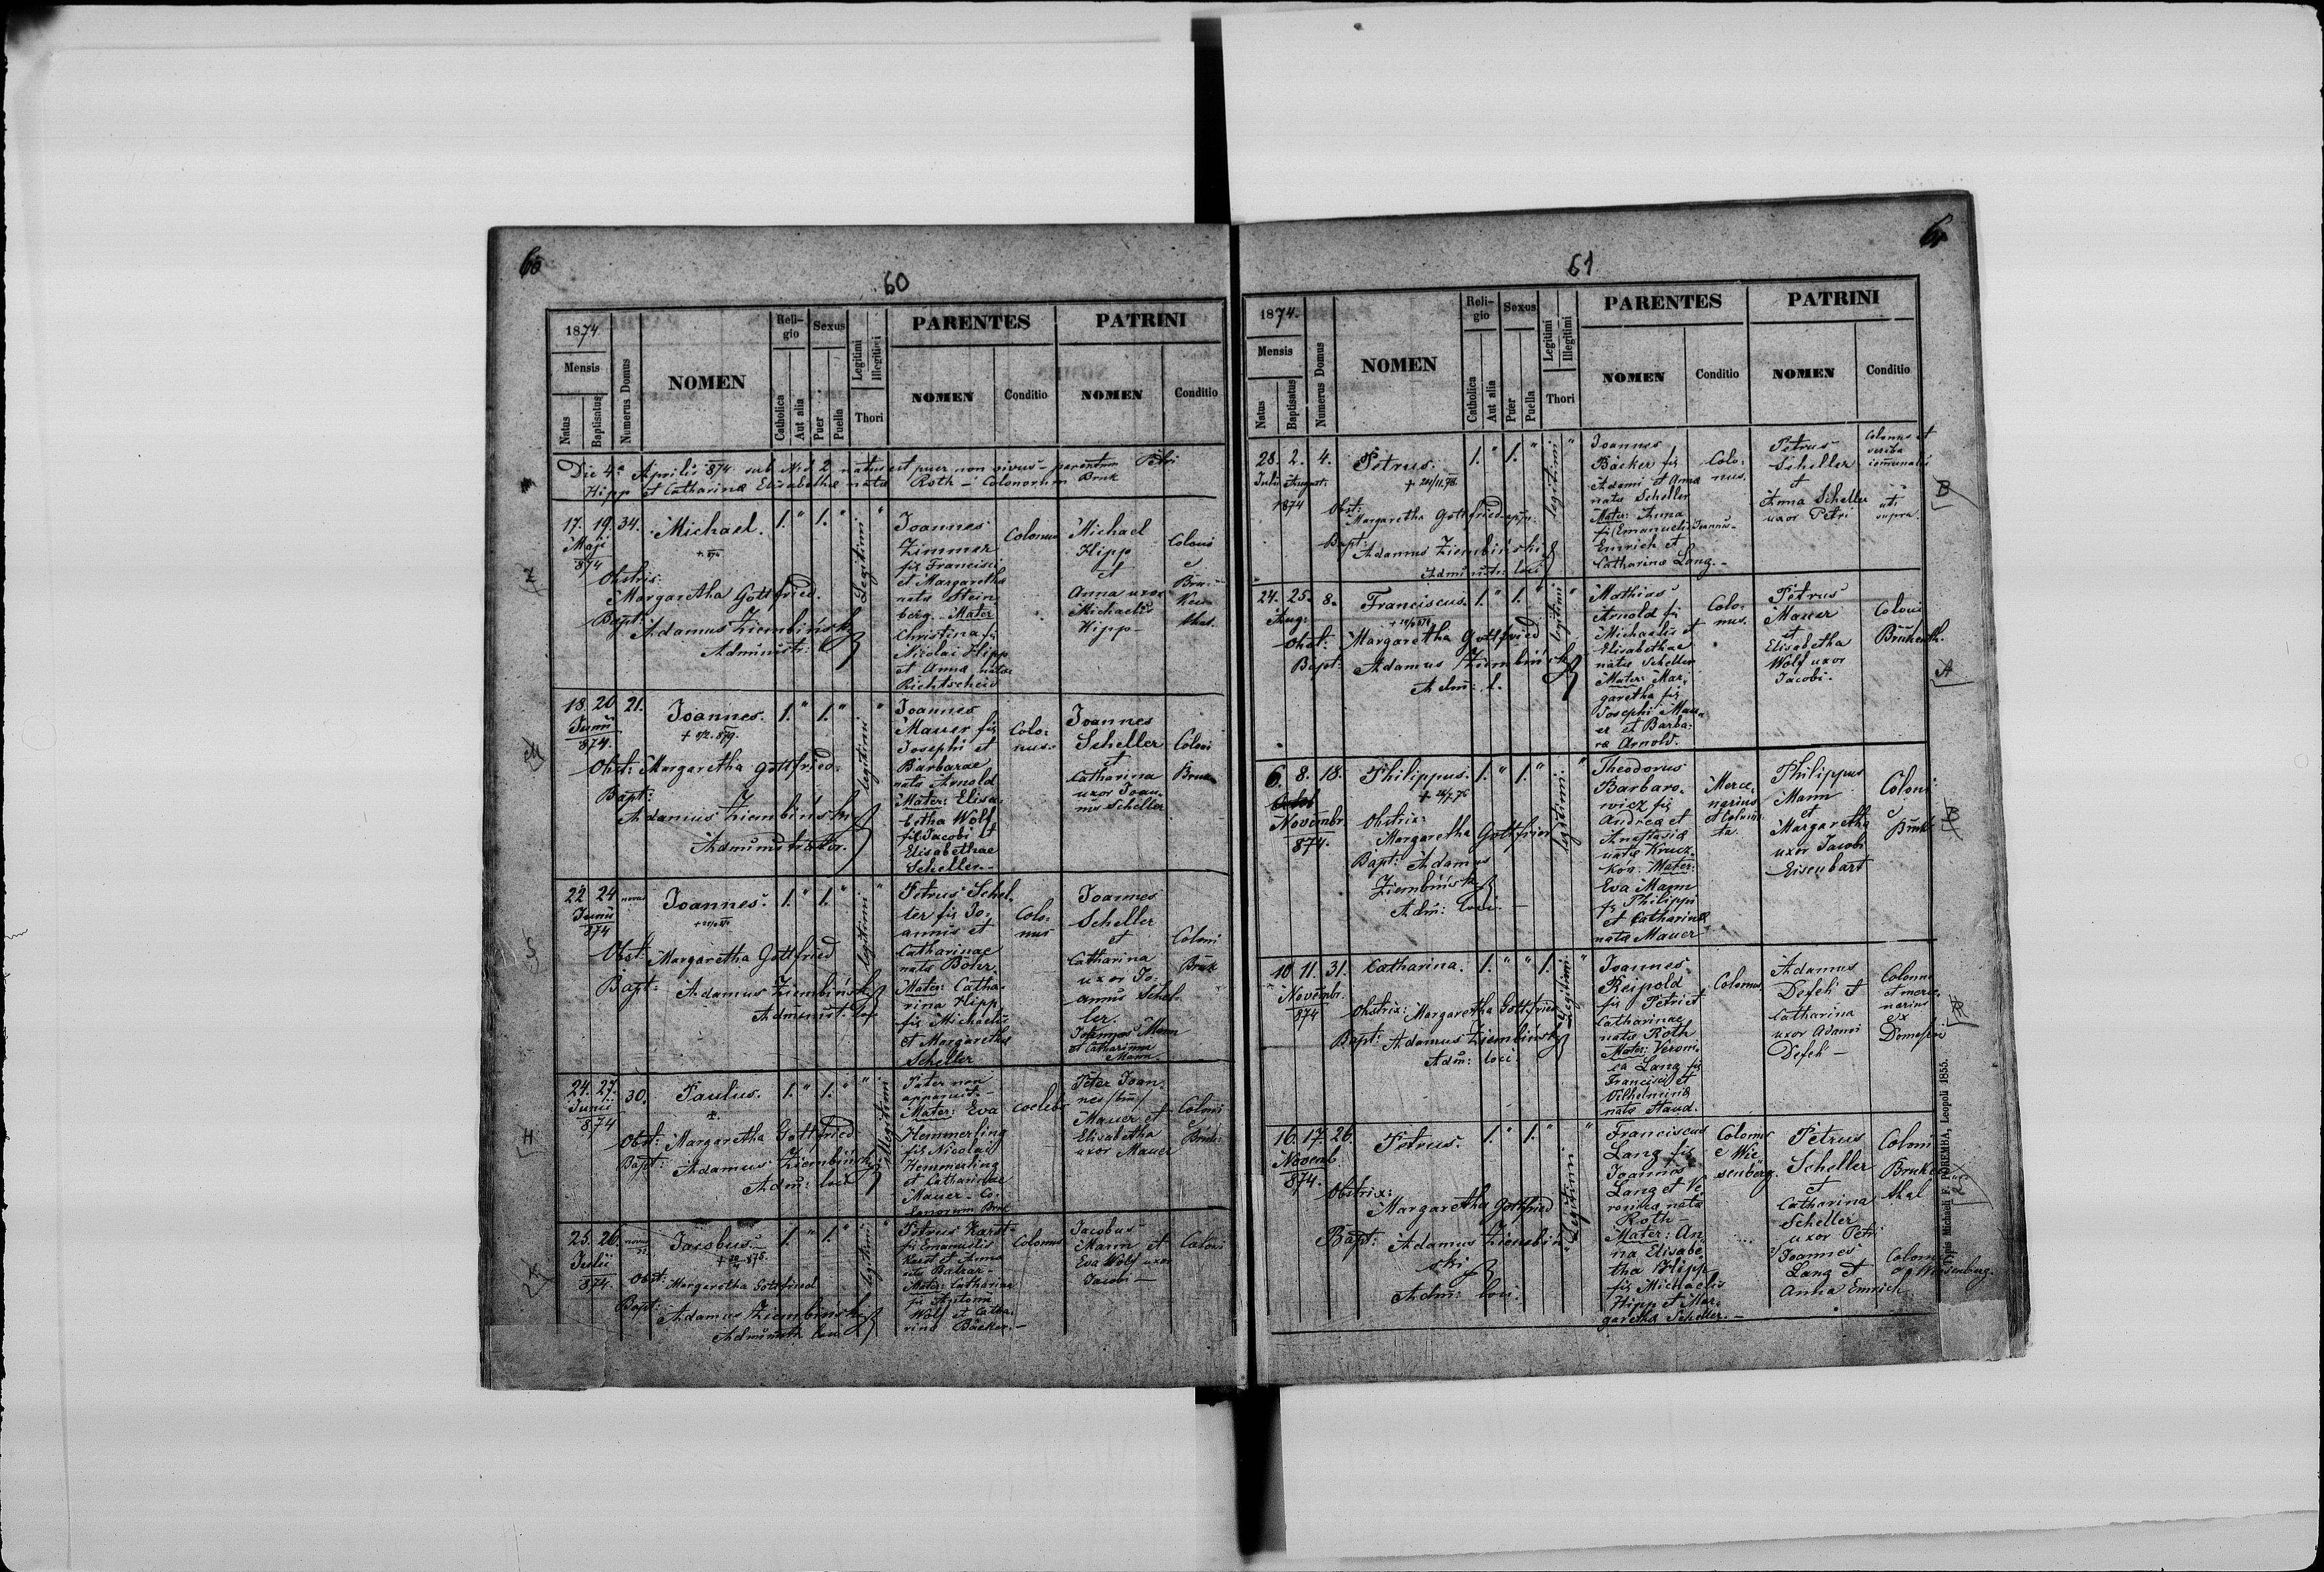 60
60
1874.
Mensis
Natus
Baptisatus
Numerus Domus
NOMEN
Religio
Catholica
Aut alia
Sexus
Puer
Puella
Legitimi
Illegitimi
Thori
PARENTES
NOMEN
Conditio
PATRINI
NOMEN
Conditio
Die 4ª Aprilis 874 sub Nro 2 natus est puer non vivus - parentum Petri
Hipp et Catharina Elisabetha nata Roth - Colonorum Bruk
17. 19. 34. Michael. 1. " 1. "
Maji
874
Obstrix:
Margaretha Gottfried.
Bapt:
Adamus Ziembiński
Administr:
Legitimi
Joannes
Zimmer
fis Francisci
et Margaretha
nata Stein
berg. Mater
Christina fis
Nicolai Hipp
et Anna nata
Richtscheid
Colonus
Michael
Hipp
et
Anna uxor
Michaelis
Hipp
Coloni
e
Bru-
ken
thal.
Z
18. 20. 21. Joannes. 1. " 1. "
Junii
874.
Obst: Margaretha Gottfried
Bapt:
Adamus Ziembiński
Administrator.
legitimi
Joannes
Mauer fis
Josephi et
Barbarae
nata Arnold
Mater: Elisa-
betha Wolf
fil: Jacobi et
Elisabethae
Scheller
Colo-
nus.
Joannes
Scheller
et
Catharina
uxor Joan-
nis Scheller
Coloni
Bruk
M
22. 24. Joannes. 1. " 1. "
Junii
874
Obst: Margaretha Gottfried
Bapt: Adamus Ziembiński
Administ. loci
legitimi
Petrus Schel-
ler fis Jo-
annis et
Catharinae
nata Böhr.
Mater: Catha-
rina Hipp
fis Michaelis
et Margaretha
Scheller
Colo-
nus
Joannes
Scheller
et
Catharina
uxor Jo-
annis Schel-
ler.
Joannes Mann
et Catharina
Mann
Coloni
Bruk
S
24. 27. 30. Paulus. 1. " 1. "
Junii
874
Obst: Margaretha Gottfried
Bapt: Adamus Ziembiński
Adm: loci
illegitimi
Pater non
apparuit.
Mater: Eva
Hemmerling
fis Nicolai
Hemmerling
et Catharinae
Mauer - Co-
lonorum Bruk
coelebs
Peter Joan-
nes
Mauer et
Elisabetha
uxor Mauer
Coloni
Bruk:
H
25. 26. Jacobus. 1. " 1. "
Julii
874.
Obst: Margaretha Gottfried
Bapt: Adamus Ziembiński
Administ. loci
legitimi
Petrus Karst
fis Emanuelis
Karst et Anna
Mater: Catharina
fis Antonii
Wolf et Catha-
rina Bäcker.
Colonus
Jacobus
Mann et
Eva Wolf uxor
Jacobi
Coloni
K
61
61
1874.
Mensis
Natus
Baptisatus
Numerus Domus
NOMEN
Religio
Catholica
Aut alia
Sexus
Puer
Puella
Legitimi
Illegitimi
Thori
PARENTES
NOMEN
Conditio
PATRINI
NOMEN
Conditio
28. 2. 4. Petrus. 1. " 1. "
Julii August.
1874
Obst:
Margaretha Gottfried
Bapt:
Adamus Ziembiński
Administr: loci
legitimi
Joannes
Bäcker fis
Adami et Anna
nata Scheller
Mater: Anna
Emrich et
Catharina Lang.
Colo-
nus.
Petrus
Scheller
et
Anna Scheller
uxor Petri
Colonus et
scriba
communalis
uti
supra.
B
24. 25. 8. Franciscus. 1. " 1. "
Aug:
Obst: Margaretha Gottfried
Bapt: Adamus Ziembiński
Adm: l.
legitimi
Mathias
Arnold fis
Michaelis et
Elisabethae
nata Scheller
Mater: Mar-
garetha fis
Josephi Mau-
er et Barba-
ra Arnold.
Colo-
nus.
Petrus
Mauer
et
Elisabetha
Wolf uxor
Jacobi.
Coloni
Brukenth.
A
6. 8. 18. Philippus. 1. " 1. "
Novembr
874.
Obstrix:
Margaretha Gottfried
Bapt: Adamus
Ziembiński
Adm: loci.
legitimi
Theodorus
Barbaro-
wicz fis
Andrea et
Anastasia
nata Krucz-
ków. Mater:
Eva Mann
fis Philippi
et Catharina
nata Mauer
Merce-
narius
Philippus
Mann
et
Margaretha
uxor Jacobi
Eisenbart
Coloni
e
Bruk
B
10. 11. 31. Catharina. 1. " " 1.
Novembr.
874
Obstrix: Margaretha Gottfried
Bapt: Adamus Ziembiński
Adm: loci.
Legitimi
Joannes
Reipold
fis Petri et
Catharinae
nata Roth
Mater: Veroni-
ca Lang fis
Francisci et
Vilhelmina
nata Staud.
Colonus
Adamus
Defeh et
Catharina
uxor Adami
Defeh
Colonus
et merce-
narius
ex
R
16. 17. 26. Petrus. 1. " 1. "
Novemb
874.
Obstrix:
Margaretha Gottfried
Bapt: Adamus Ziembiń-
ski
Adm: loci.
Legitimi
Franciscus
Lang fis
Joannis
Lang et Ve-
ronica nata
Roth
Mater: An-
na Elisabe-
tha Hipp
fis Michaelis
Hipp et Mar-
garetha Scheller.
Colonus
e Wie-
senberg.
Petrus
Scheller
et
Catharina
Scheller
uxor Petri
Joannes
Lang et
Anna Emrich
Coloni
Bruken-
thal
Coloni
e Wiesenberg.
L
Typis Michaeli F. POREMBA, Leopoli 1855.